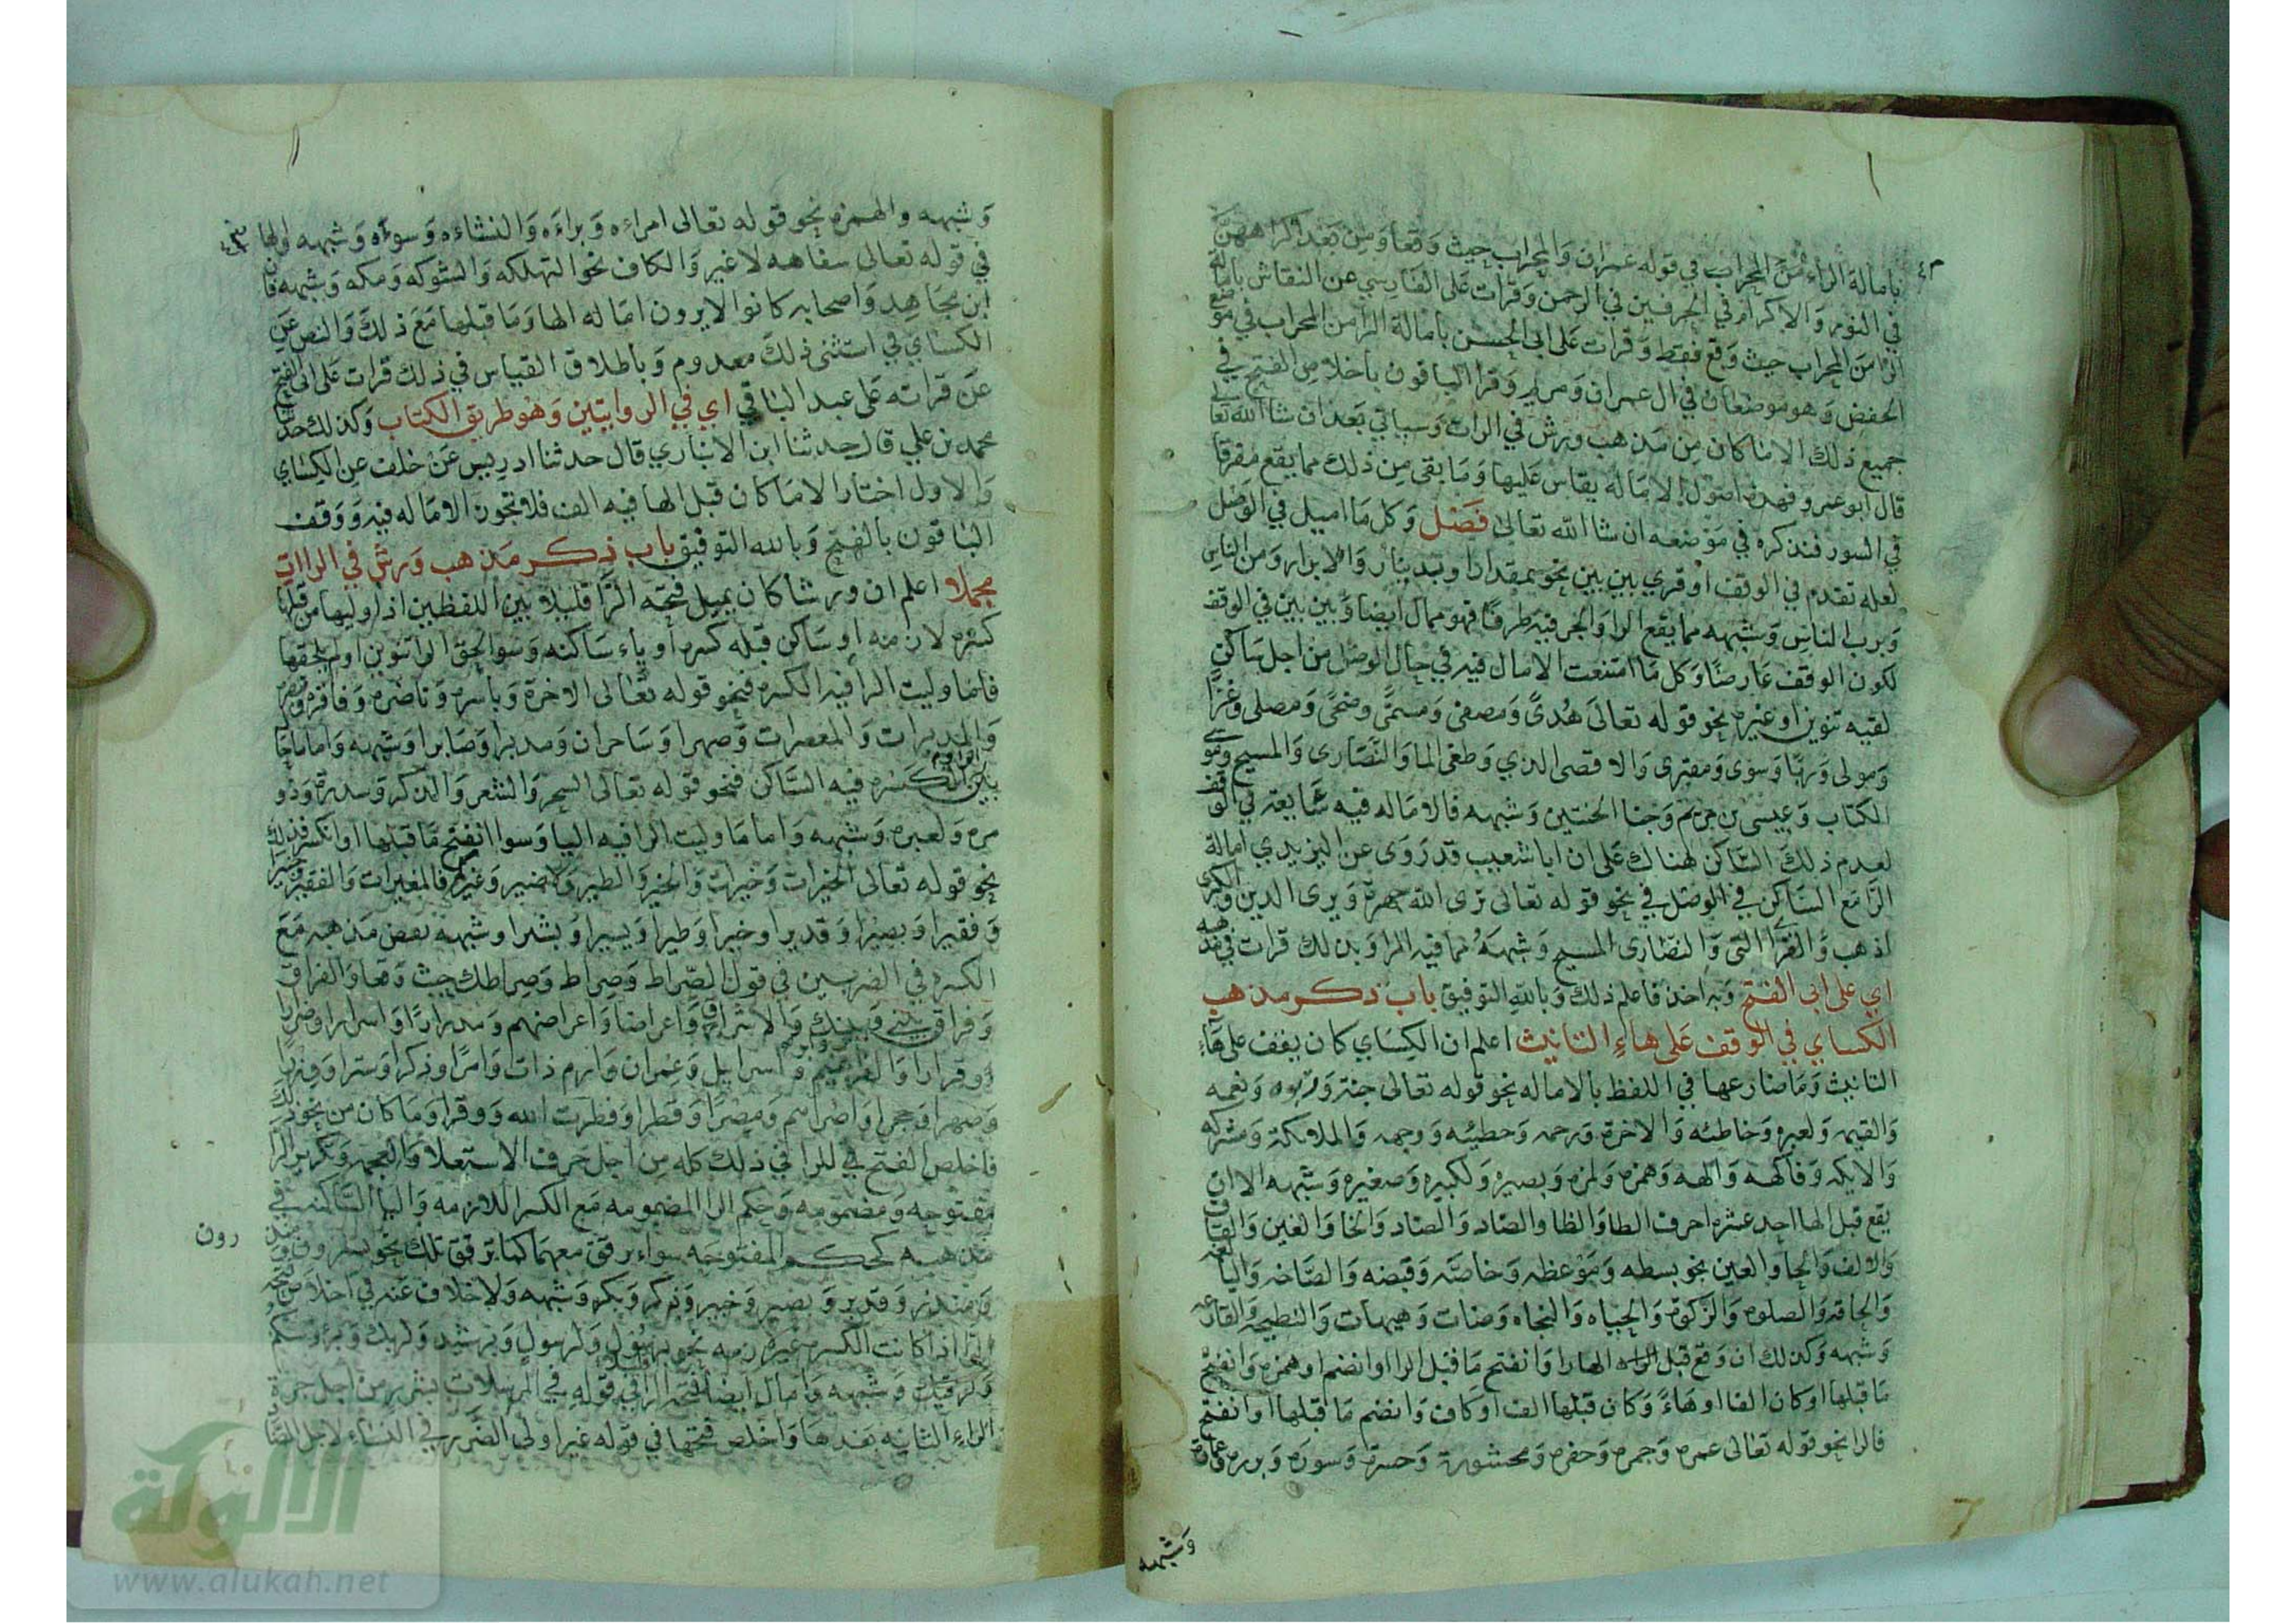 بامالة الراء من المحراب في قوله عمران والمحراب حيث وقعا ومن بعد اكراههن
في النور والاكرام في الحرفين في الرحمن وقرات على الفارسي عن النقاش بامالة
الرا من المحراب حيث وقع فقط وقرات على ابي الحسن بامالة الرا من المحراب في موضع
الخفض وهو موضعان في ال عمران ومريم وقرا الباقون باخلاص الفتح في
جميع ذلك الا ما كان من مذهب ورش في الرات وسياتي بعد ان شا الله تعالى
قال ابو عمرو فهذه اصول الامالة يقاس عليها وما بقى من ذلك مما يقع مفرقا
في السور فنذكره في موضعه ان شا الله تعالى فصل وكل ما اميل في الوصل
لعله تقدم في الوقف او قري بين بين نحو بمقدار وبدينار والابرار ومن الناس
وبرب الناس وشبهه مما يقع الرا والجر فيه طرفا فهو ممال ايضا وبين بين في الوقف
لكون الوقف عارضا وكل ما امتنعت الامال فيه في حال الوصل من اجل ساكن
لقيه تنوين او غيره نحو قوله تعالى هدى ومصفى ومسمى وضحى ومصلى وغزا
ومولى وربا وسوى ومفترى والاقصى الذي وطغى الما والنصارى والمسيح وموسى
الكتاب وعيسى بن مريم وجنا الجنتين وشبهه فالاماله فيه شايعة في الوقف
لعدم ذلك الساكن هناك على ان ابا شعيب قد روى عن اليزيدي امالة
الرا مع الساكن في الوصل في نحو قوله تعالى نرى الله جهرة ويرى الذين والكبرى
اذهب والقرا التي والنصارى المسيح وشبهه مما فيه الرا وبذلك قرات في مذهبه
اي على ابي الفتح وبه اخذ فاعلم ذلك وبالله التوفيق باب ذكر مذهب
الكساي في الوقف على هاء التانيث اعلم ان الكساي كان يقف على هاء
التانيث وما ضارعها في اللفظ بالاماله نحو قوله تعالى جنة وربوه ونعمه
والقيمه ولعبره وخاطئه والاخرة ورحمه وخطيئه ووجهه والملائكة ومشركه
والايكه وفاكهه والهه وهمزه ولمزه وبصيره ولكبيره وصغيره وشبهه الا ان
يقع قبل الها احد عشره احرف الطا والظا والصاد والضاد والخا والغين والقاف
والالف والحا والعين نحو بسطه وموعظه وخاصه وقبضه والصاخه والبالغه
والحاقه والصلوه والزكوة والحياه والنجاه ومنات وهيهات والنطيحه والقارعه
وشبهه وكذلك ان وقع قبل الها را وانفتح ما قبل الرا او انضم او همزه وانفتح
ما قبلها او كان الفا او هاء وكان قبلها الف او كاف وانضم ما قبلها او انفتح
فالرا نحو قوله تعالى عمره وجمره وحفره ومحشورة وحسرة وسورة وبرره وعمارة
وشبهه
وشبهه والهمزه نحو قوله تعالى امراءه وبراءه والنشاءه وسوءه وشبهه والها
في قوله تعالى سفاهه لا غير والكاف نحو التهلكه والشوكه ومكه وشبهه فان
ابن مجاهد واصحابه كانوا لا يرون اماله الها وما قبلها مع ذلك والنص عن
الكساي في استثنى ذلك معدوم وباطلاق القياس في ذلك قرات على ابي الفتح
عن قراته على عبد الباقي اي في الروايتين وهو طريق الكتاب وكذلك حدثنا
محمد بن علي قال حدثنا ابن الانباري قال حدثنا ادريس عن خلف عن الكساي
والاول اختار الا ما كان قبل الها فيه الف فلا تجوز الاماله فيه ووقف
الباقون بالفتح وبالله التوفيق باب ذكر مذهب ورش في الراات
مجملا اعلم ان ورشا كان يميل فتحة الرا قليلا بين اللفظين اذا وليها من قبلها
كسره لازمه او ساكن قبله كسره او ياء ساكنه وسوا لحق الرا تنوين او لم يلحقها
فاما وليت الرا فيه الكسره فنحو قوله تعالى الاخرة وباسره وناضره وفاقره
والمدبرات والمعصرات وصهرا وساحران ومدبرا وصابرا وشبهه واما ما حا
بين الكسره فيه الساكن فنحو قوله تعالى السحر والشعر والذكر وسدرة وذو
مره ولعبره وشبهه واما ما وليت الرا فيه اليا وسوا انفتح ما قبلها او انكسر فذلك
نحو قوله تعالى الخيرات وخيرات والخير والطير ولا ضير وغيركم فالمغيرات والفقير
وفقيرا وبصيرا وقديرا وخيرا وطيرا ويسيرا وبشرا وشبهه نقض مذهبه مع
الكسره في الضربين في قول الصراط وصراط وصراطك حيث وقعا والفراق
وفراق بيني وبينك والاشراق واعراضا واعراضهم ومدرارا واسرارا وضرارا
وقرارا وابراهيم واسرايل وعمران وارم ذات وامرا وذكرا وسترا ووزرا
وصهرا وحجرا واصرا ومصرا وقطرا وفطرت الله ووقرا وما كان من نحو ذلك
فاخلص الفتح في للرا في ذلك كله من اجل حرف الاستعلا والعجمه وتكرير الرا
مفتوحه ومضمومه وحكم الرا المضمومه مع الكسر اللازمه واليا الساكنه في
مذهبه كحكم المفتوحه سواء يرقق معهما كما ترقق تلك نحو يسرون
رون
ومنذر وقدير وبصير وخبير وذكر وبكر وشبهه ولا خلاف عنه في اخلاص
الرا اذا كانت الكسره غير لازمه نحو برسول ولرسول وبرشيد ولربك وبرءوسكم
ولرقيك وشبهه وامال ايضا فتحة الرا في قوله في المرسلات بشرر من اجل جرة
الراء الثانيه بعدها واخلص فتحها في قوله غير اولى الضرر في النساء لاجل الضاد
الالوكة
www.alukah.net